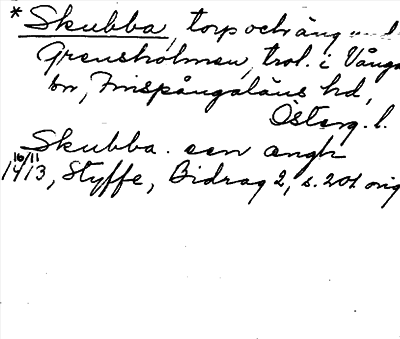 * Skubba, torp och äng
Grensholmen, trol. i Vånga
sn, Finspångaläns hd,
Österg. l.
Skubba. een ængh
16/11 1413, Styffe, Bidrag 2, s. 201 orig